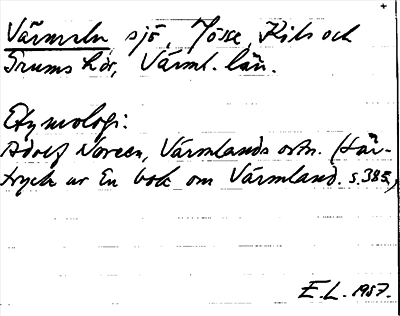 Värmeln sjö, Jösse, Kils och
Grums hdr, Värml. län.
Etymologi:
Adolf Noreen, Värmlands ortn. (Sär-
tryck ur En bok om Värmland. s. 385,
E.L. 1957.